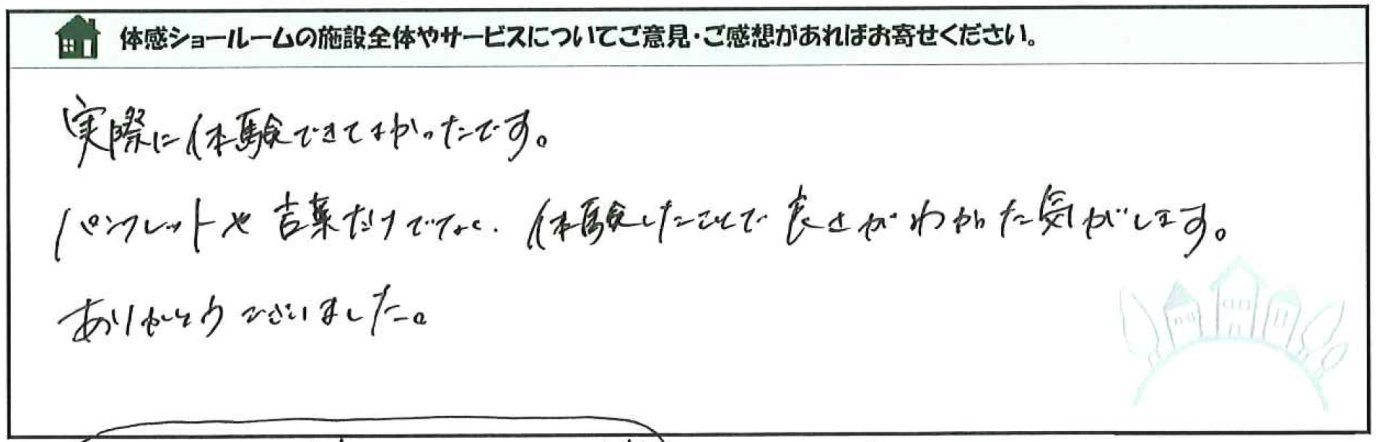 体感ショールームの施設全体やサービスについてご意見・ご感想があればお寄せください。
実際に体験できてよかったです。
パンフレットや言葉だけでなく、体験したことで良さがわかった気がします。
ありがとうございました。